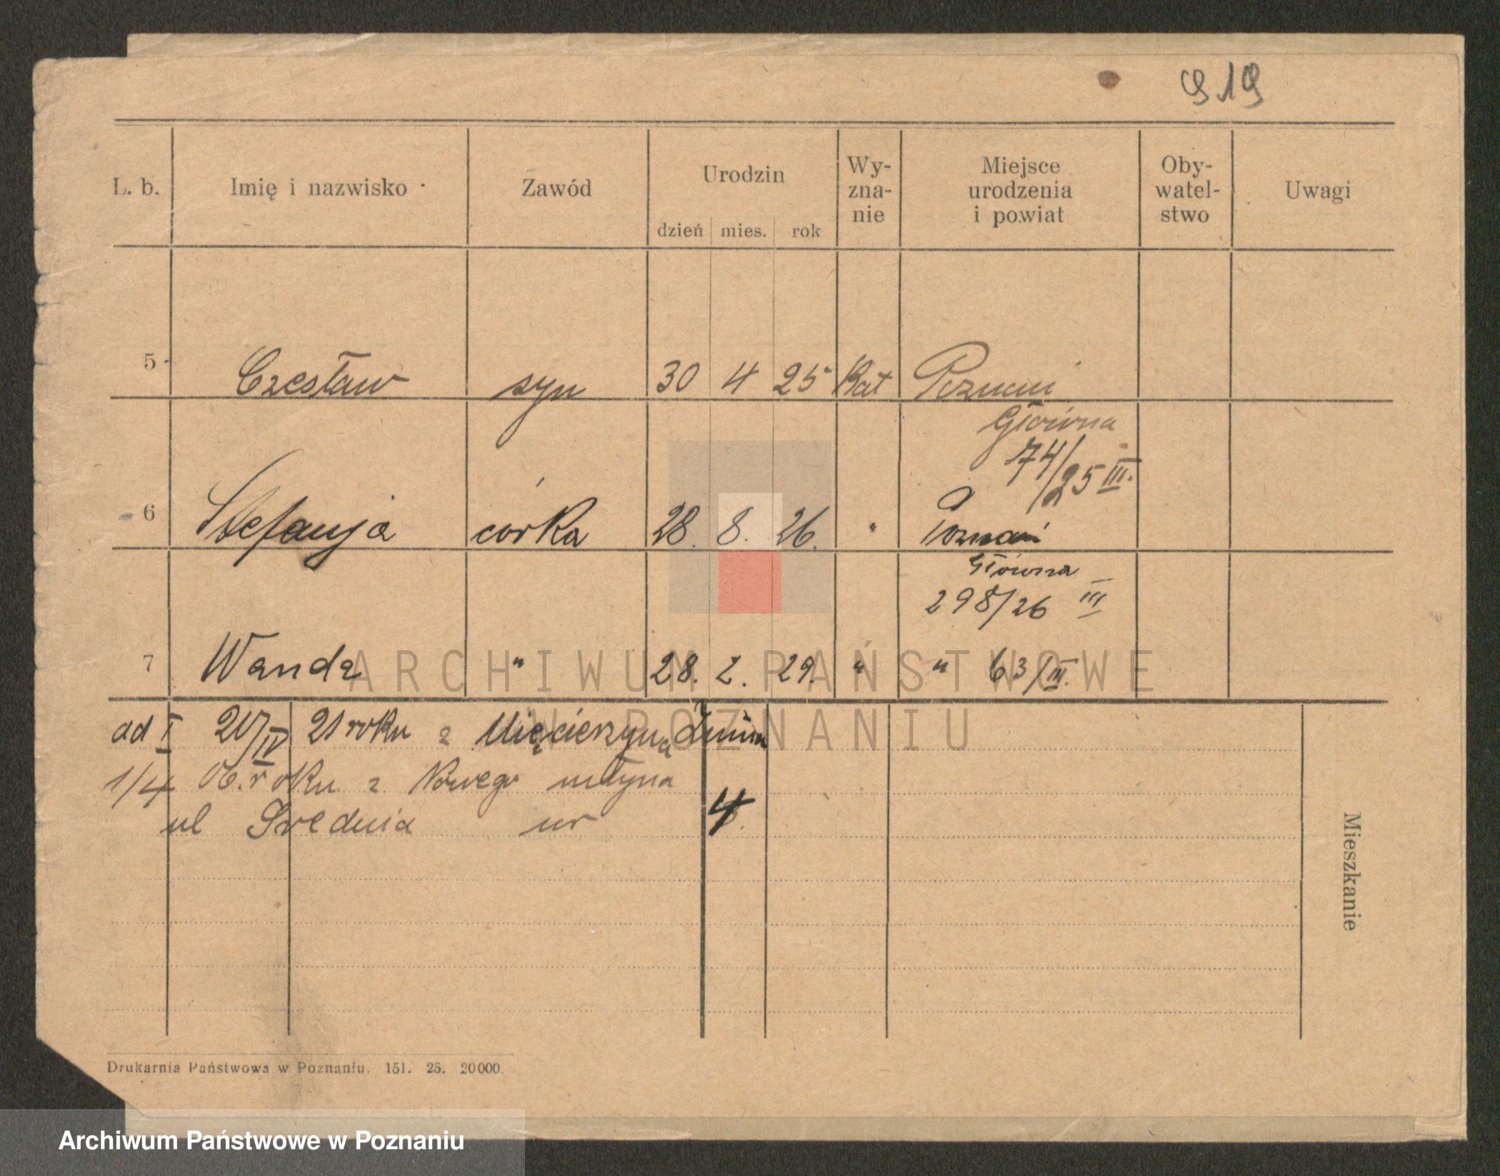 919
L. b. Imię i nazwisko Zawód Urodzin Wy-zna-nie Miejsce urodzenia i powiat Oby-watel-stwo Uwagi
dzień mies. rok
5 Czesław syn 30 4 25 Kat Poznań
Główna
74/25 III.
6 Stefanja córka 28. 8. 26. " Poznań
Główna
298/26 III
7 Wanda " 28. 2. 29. " " 63/III.
ARCHIWUM PAŃSTWOWE
W POZNANIU
ad I 20/IV 21 roku z Mięcierzyna Żnin
1/4 06. roku z Nowego młyna
ul Średnia nr 4.
Mieszkanie
Drukarnia Państwowa w Poznaniu. 151. 25. 20000.
Archiwum Państwowe w Poznaniu